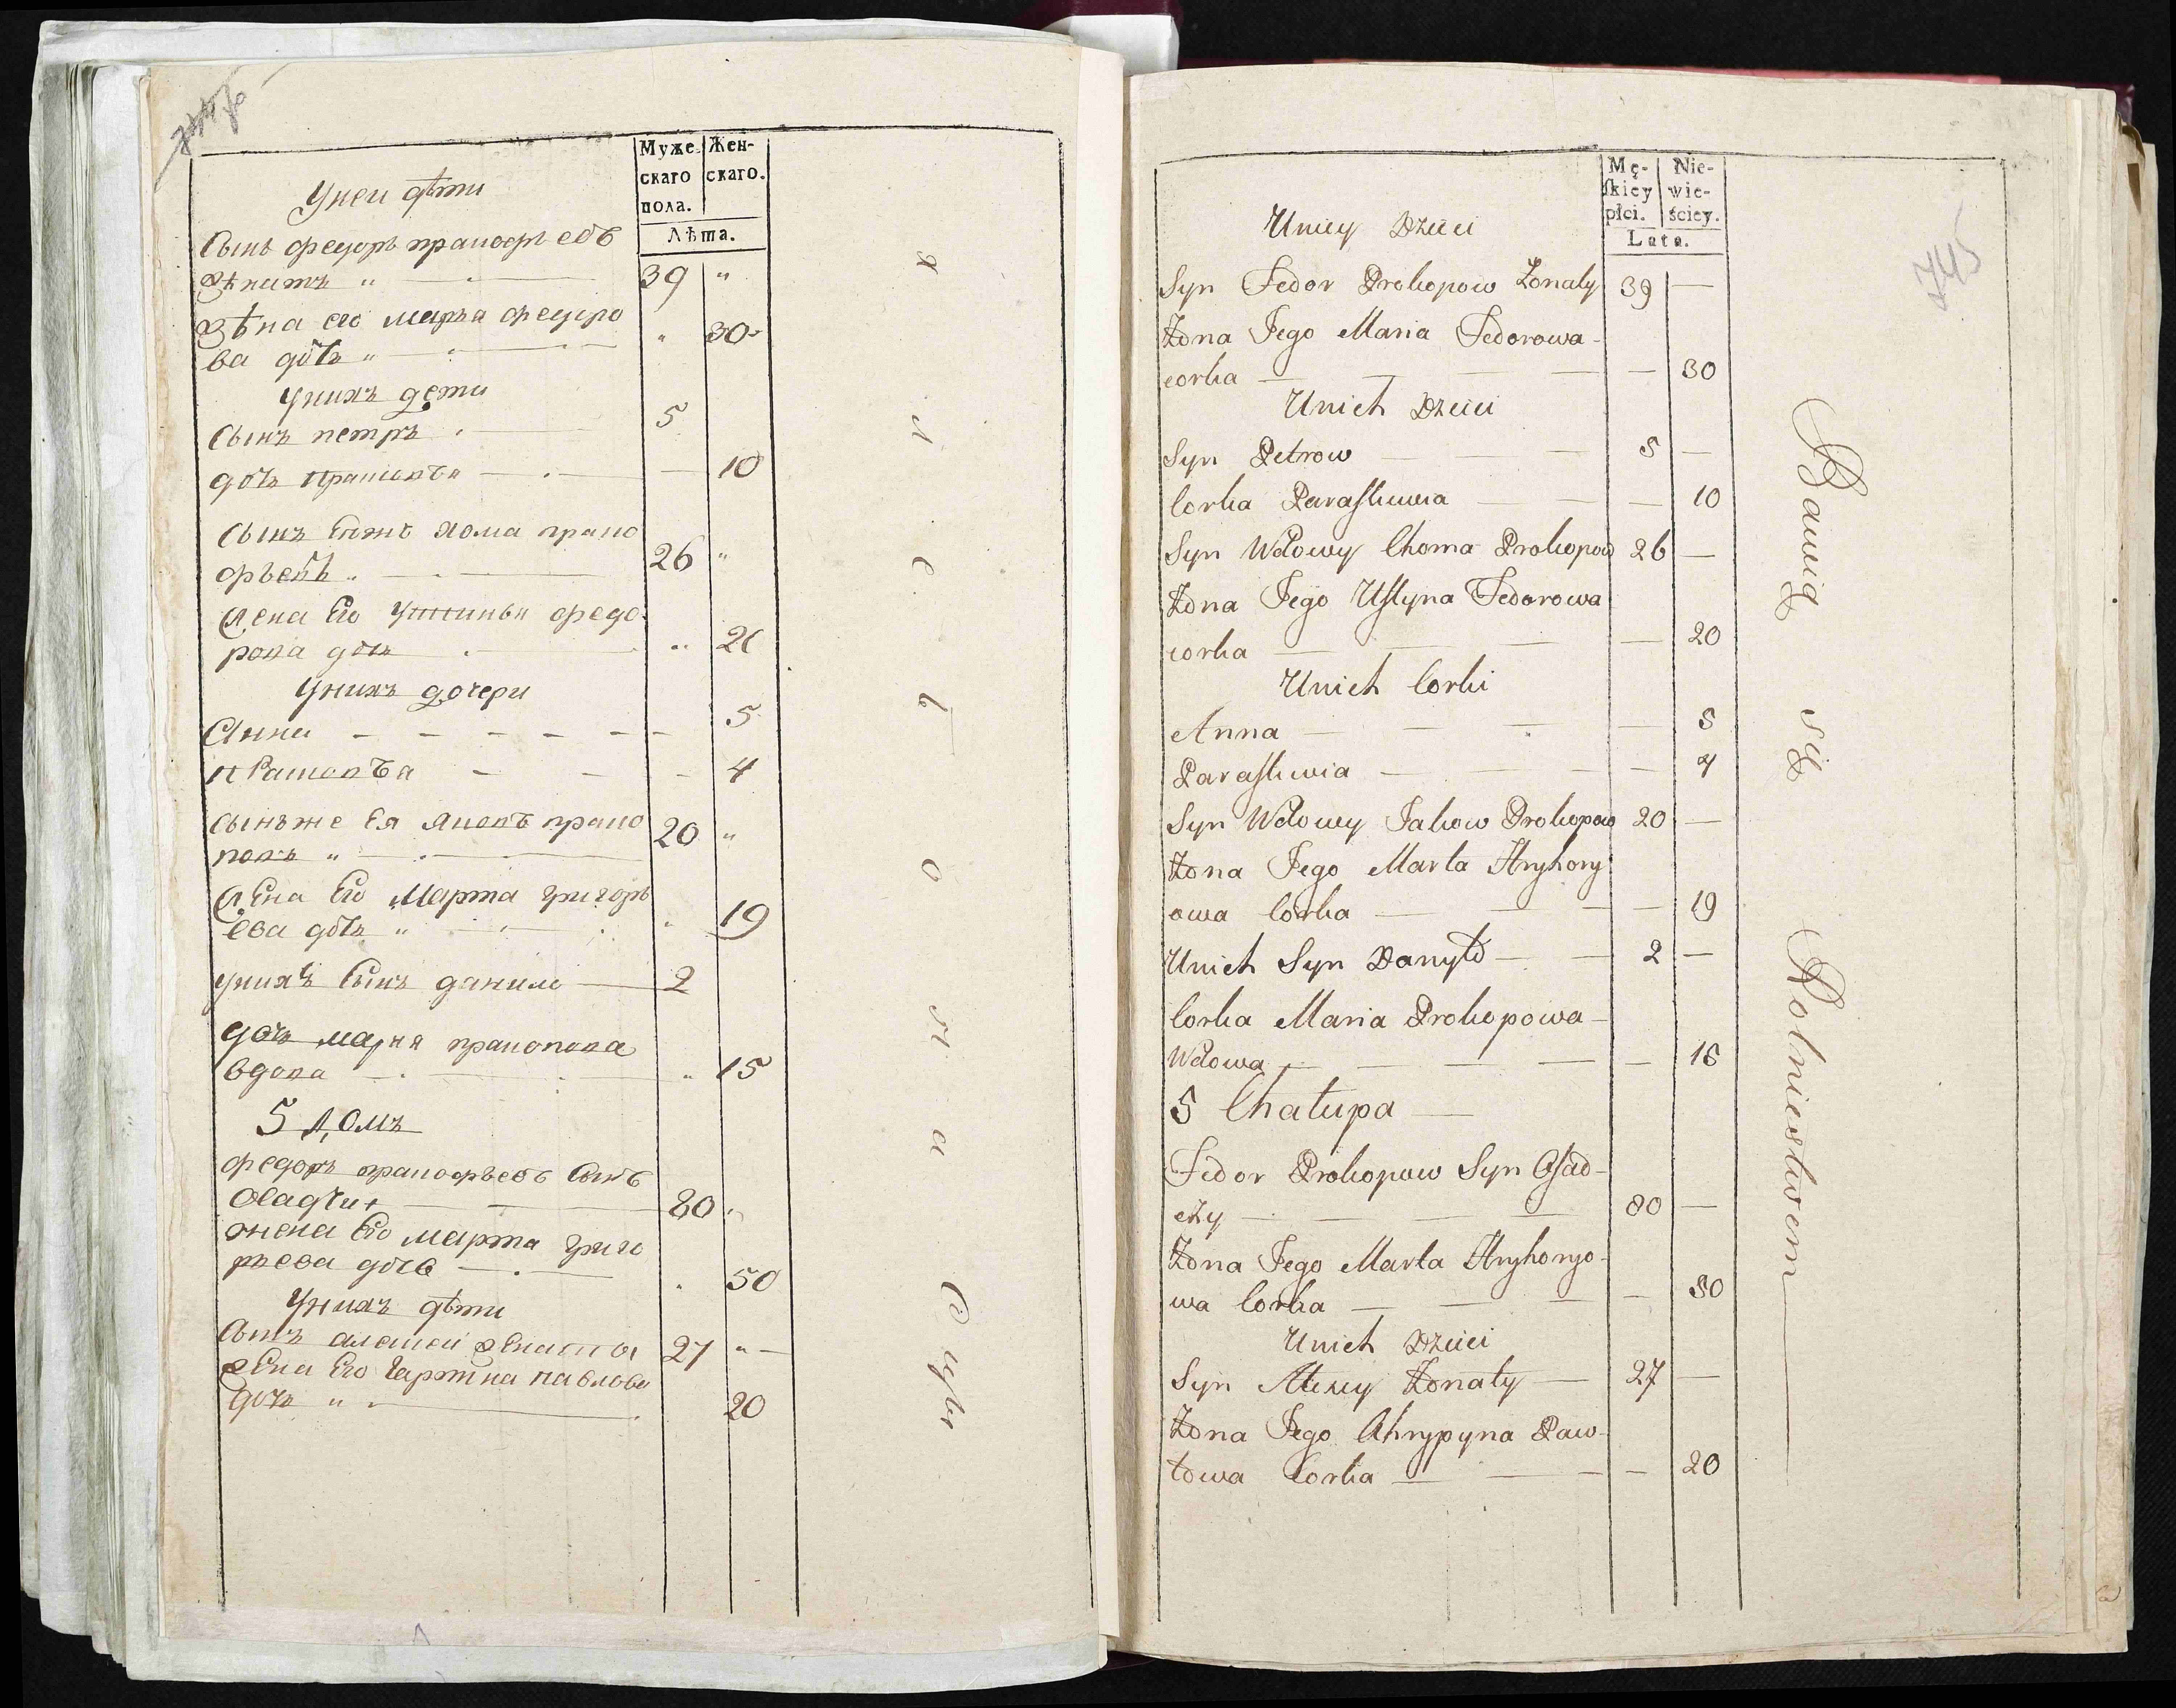 Муже Жен-
скаго скаго.
пола.
Лѣта.
Уней дѣти
Сынъ федоръ прапофьевъ
39 "
Зѣна его марья федоро
ва дочъ " 30
Унихъ дети
Сынъ петръ 5
дочъ 10
Сынъ хома прако
фьевъ 26 "
его Устинья федо
рова дочъ 20
Унихъ дочери
Анна 5
4
Сынъже ея яковъ проко
повъ " 20 "
Жена его Марта григорь
ева дочъ " 19
Унихъ Сынъ данило 2
дочъ мария пракопова
вдова 15
5 Домъ
федоръ пракофьевъ Сынъ
80
жена его марта григо
рьева дочъ 50
Унихъ дѣти
Сынъ алексей женаты 27 "
жена его павлова
дочъ " 20
745
Mę- Nie-
skiey wie-
płci. ściey.
Lata.
Uniey Dzieci
Syn Fedor Prokopow Żonaty 39 —
Żona Jego Maria Fedorowa
corka — 30
Unich Dzieci
Syn Petrow 5 —
Corka Paraskiewia — 10
Syn Wdowy Choma Prokopow 26 —
Żona Jego Ustyna Fedorowa
corka — 20
Unich Corki
Anna — 5
Paraskiewia — 4
Syn Wdowy Jakow Prokopow 20 —
Żona Jego Marta Hryhory
owa Corka — 19
Unich Syn Danyło — 2 —
Corka Maria Prokopowa
Wdowa — 15
5 Chałupa —
Fedor Prokopow Syn Osad-
czy — 80 —
Żona Jego Marta Hryhoryo-
wa Corka — 50
Unich Dzieci
Syn Alexey Żonaty — 27 —
Żona Jego Ahrypyna Paw-
łowa Corka — 20
Bawią się Rolniestwem